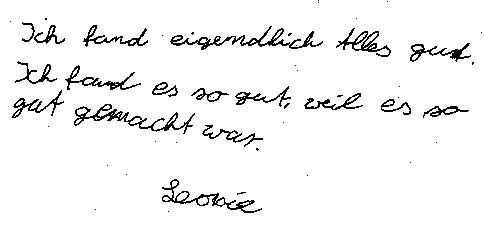 Ich fand eigendlich Alles gut.
Ich fand es so gut, weil es so
gut gemacht war.
Leonie